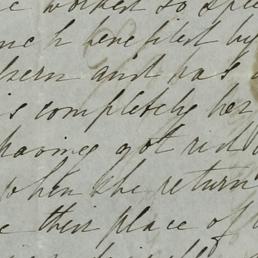 worked so
much benefited by
and has
is completely her
having got rid
when she return
their place of